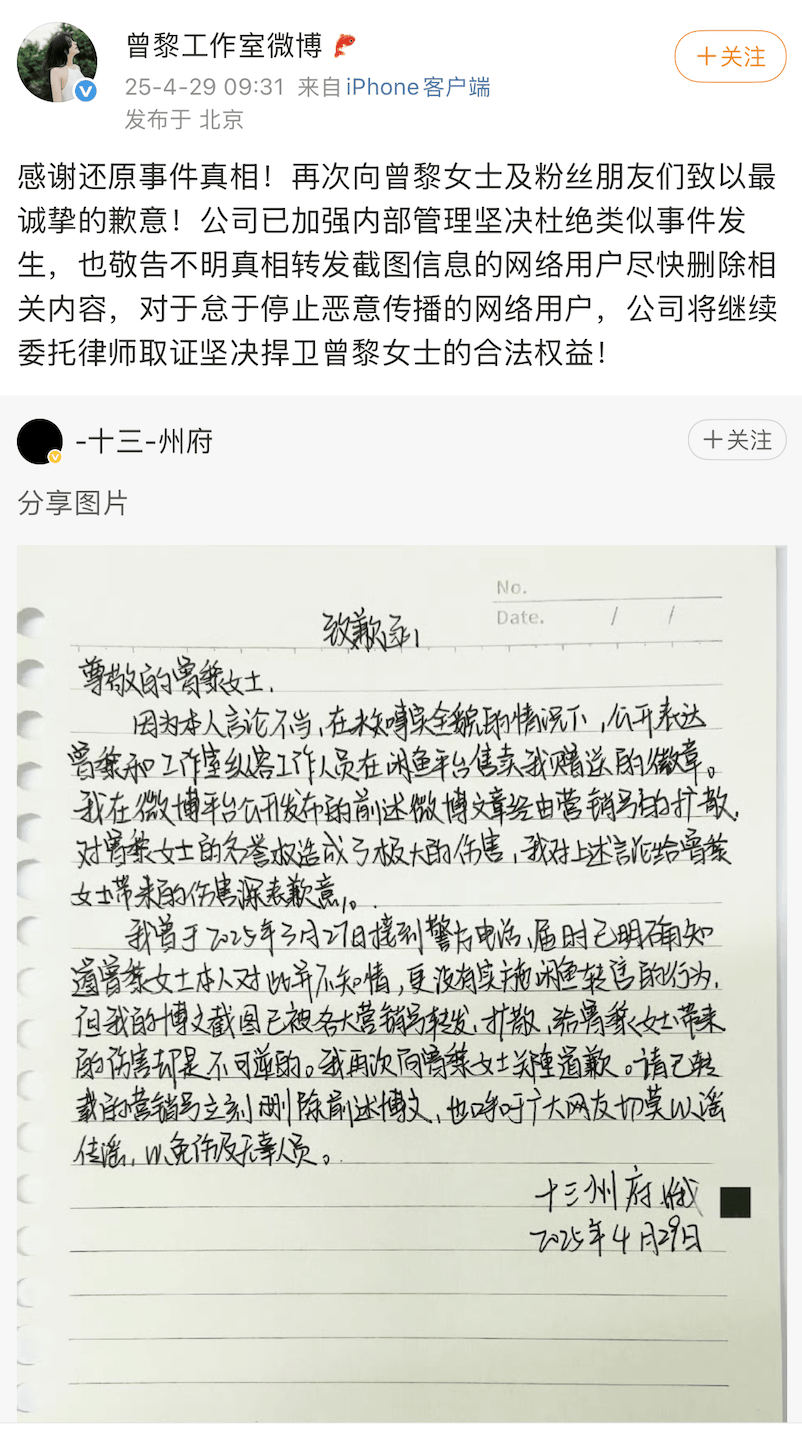 曾黎工作室微博
+关注
25-4-29 09:31 来自 iPhone客户端
发布于 北京
感谢还原事件真相！再次向曾黎女士及粉丝朋友们致以最
诚挚的歉意！公司已加强内部管理坚决杜绝类似事件发
生，也敬告不明真相转发截图信息的网络用户尽快删除相
关内容，对于怠于停止恶意传播的网络用户，公司将继续
委托律师取证坚决捍卫曾黎女士的合法权益！
-十三-州府
+关注
分享图片
No.
Date. / /
致歉函
尊敬的曾黎女士，
因为本人言论不当，在未知晓实全貌的情况下，公开表达
曾黎和工作室纵容工作人员在闲鱼平台售卖我赠送的徽章。
我在微博平台公开发布的前述微博文章经由营销号的扩散，
对曾黎女士的名誉权造成了极大的伤害，我对上述言论给曾黎
女士带来的伤害深表歉意。
我曾于2025年3月27日接到警方电话，届时已明确知
道曾黎女士本人对此并不知情，更没有实施闲鱼转售的行为，
但我的博文截图已被各大营销号转发，扩散，给曾黎女士带来
的伤害却是不可逆的。我再次向曾黎女士郑重道歉。请已转
载的营销号立刻删除前述博文，也呼吁广大网友切莫以谣
传谣，以免伤及无辜人员。
十三州府
2025年4月29日